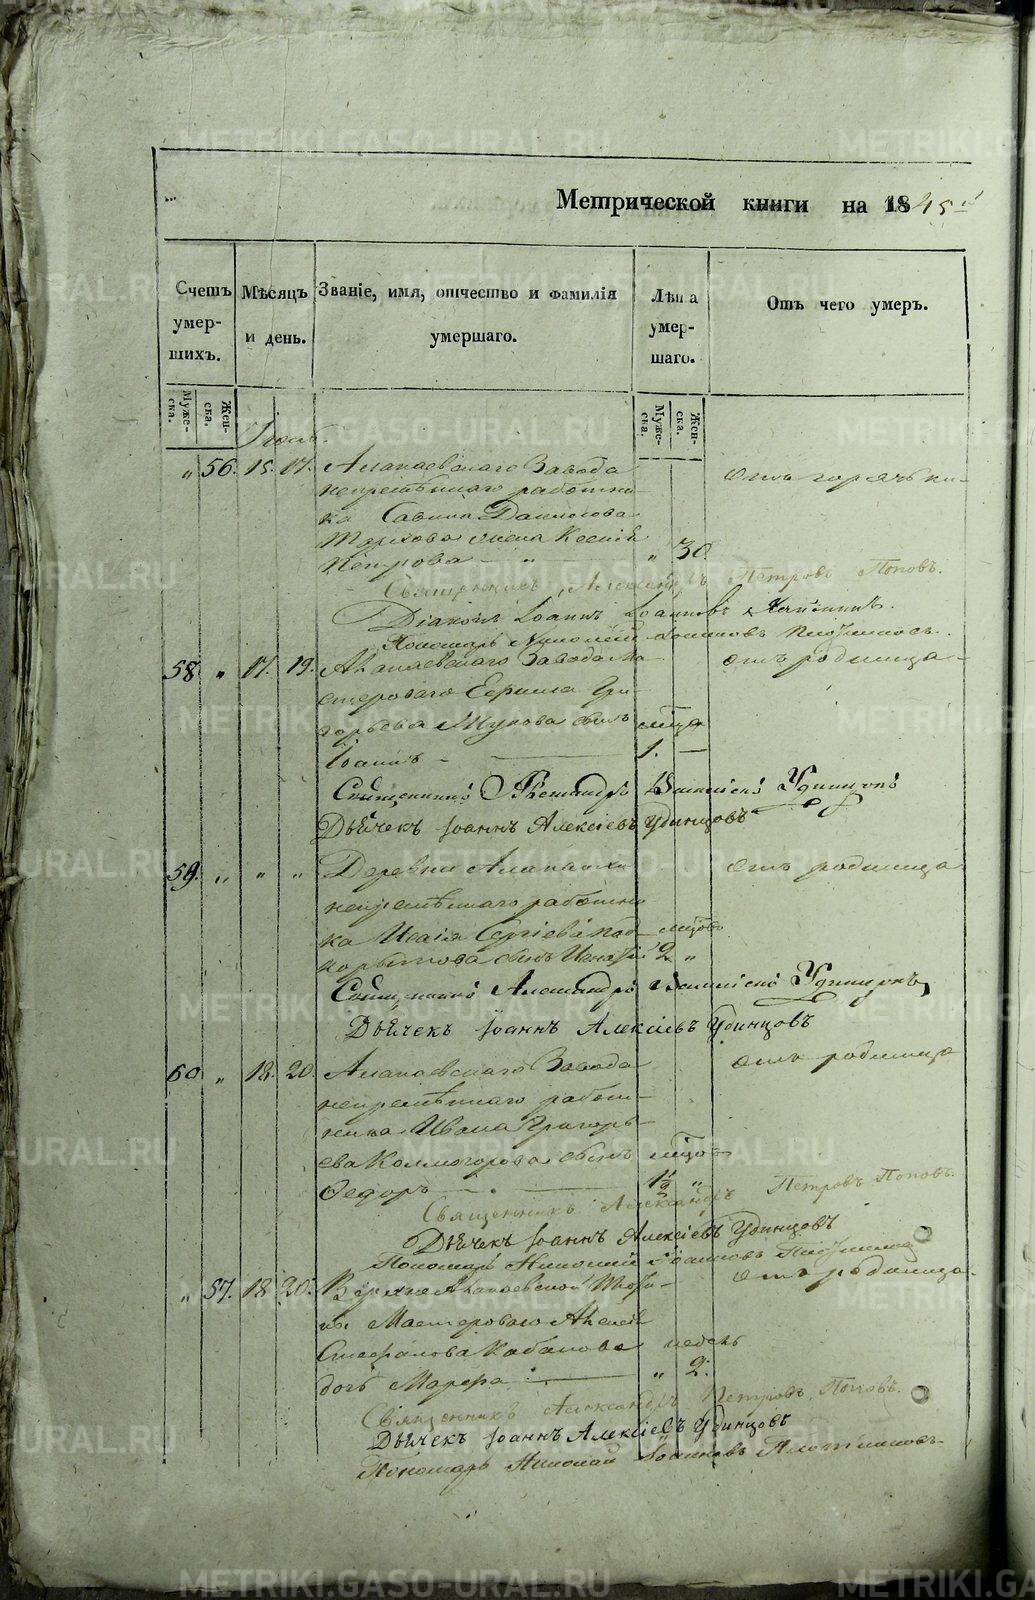 Метрической книги на 1845й
Счетъ умершихъ.
Мѣсяцъ и день.
Званіе, имя, отчество и фамилія умершаго.
Лѣта умершаго.
Отъ чего умеръ.
Мужеска.
Женска.
Мужеска.
Женска.
„ 56. 15. 17. Алапаевскаго Завода
непремѣннаго работни-
ка Савина Данилова
жена Ксенія
Петрова „ 30.
отъ горячки
Священникъ Александръ Петровъ Поповъ.
Діаконъ Іоаннъ Іоанновъ
Пономарь Николай Іоанновъ
58 „ 17. 19. Алапаевскаго Завода ма-
стероваго Ефима Гри-
горьева Жукова сынъ
Іоаннъ
мѣсяц
1. —
отъ родимца
Священникъ Александръ Удинцовъ
Дьячекъ Іоаннъ Алексіевъ Удинцовъ
59. „ „ „ Деревни Алапаихи
непремѣннаго работни-
ка Исаія Сергіева Под-
корытова сынъ Игнатій
2 „
отъ родимца
Священникъ Александръ Удинцовъ
Дьячекъ Іоаннъ Алексіевъ Удинцовъ
60 „ 18. 20. Алапаевскаго Завода
непремѣннаго работ-
ника Ивана Григорь-
ева Колмогорова сынъ
Федоръ
1½ „
отъ родимца
Священникъ Александръ Петровъ Поповъ.
Дьячекъ Іоаннъ Алексіевъ Удинцовъ
Пономарь Николай Іоанновъ
„ 57. 18 20. Верхне Алапаевской
Мастероваго
Стефанова Кабакова
дочь Марѳа
недѣль
„ 2.
отъ родимца
Священникъ Александръ Петровъ Поповъ.
Дьячекъ Іоаннъ Алексіевъ Удинцовъ
Пономарь Николай Іоанновъ
METRIKI.GASO-URAL.RU